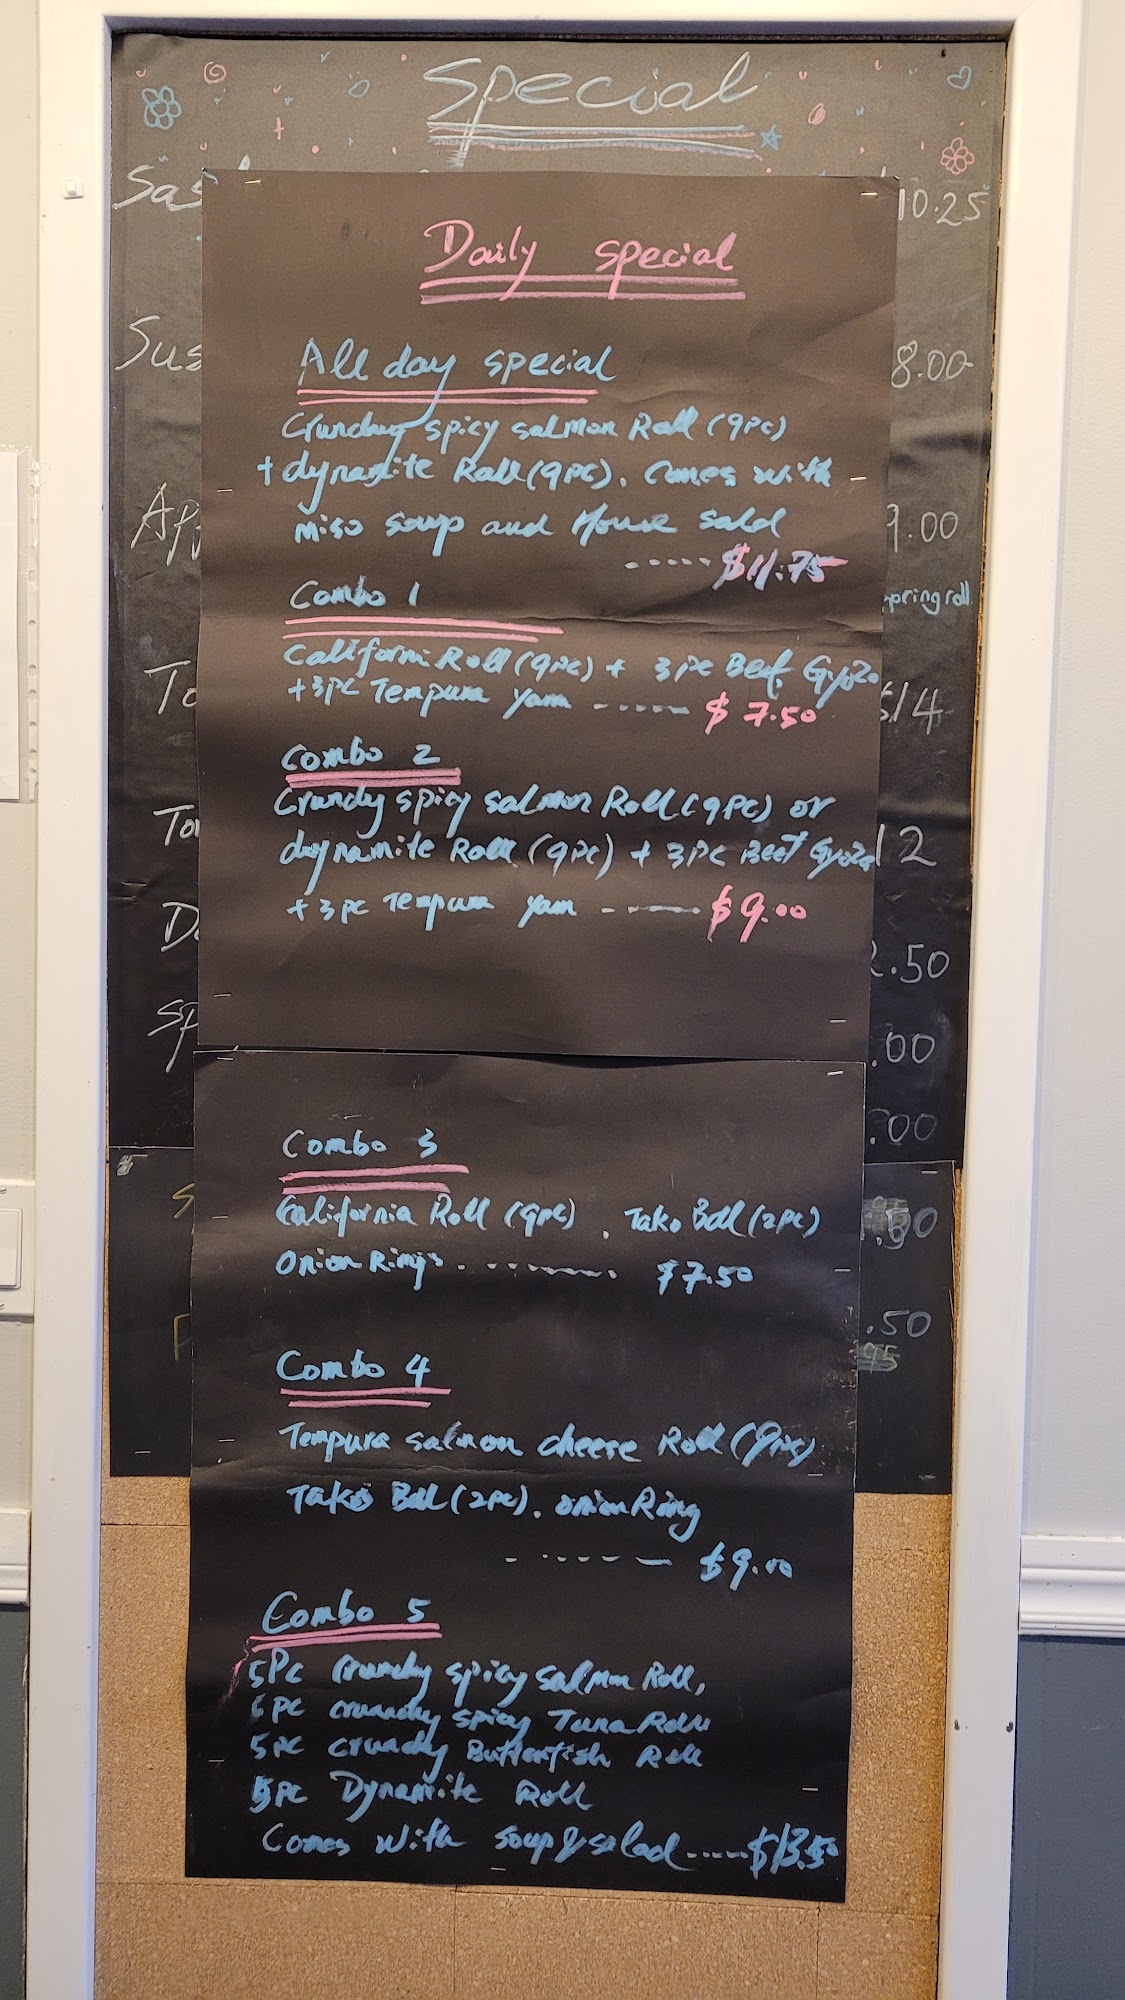 Special
10.25
8.00
9.00
spring roll
$14
12
2.50
.00
.00
.50
.50
95
Daily special
All day special
Crunchy spicy salmon Roll (9pc)
+ dynamite Roll (9pc). Comes with
miso soup and House Salad
----- $11.75
Combo 1
California Roll (9pc) + 3pc Beef Gyoza
+ 3pc Tempura yam ------ $7.50
Combo 2
Crundy spicy salmon Roll (9pc) or
dynamite Roll (9pc) + 3pc Beef Gyoza
+ 3pc Tempura yam ------ $9.00
Combo 3
California Roll (9pc) . Tako Ball (2pc)
Onion Rings ......... $7.50
Combo 4
Tempura salmon cheese Roll (9pc)
Tako Ball (2pc). onion Ring
------ $9.00
Combo 5
5Pc crundy spicy salmon Roll,
pc crundy spicy Tuna Roll
5pc crundy Butterfish Roll
5pc Dynamite Roll
Comes with soup & salad ----- $13.50